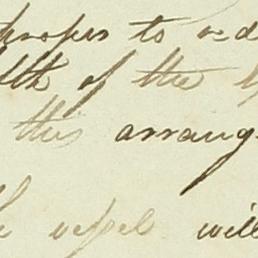 proper to ad
lth of the
this arrang
vessel will